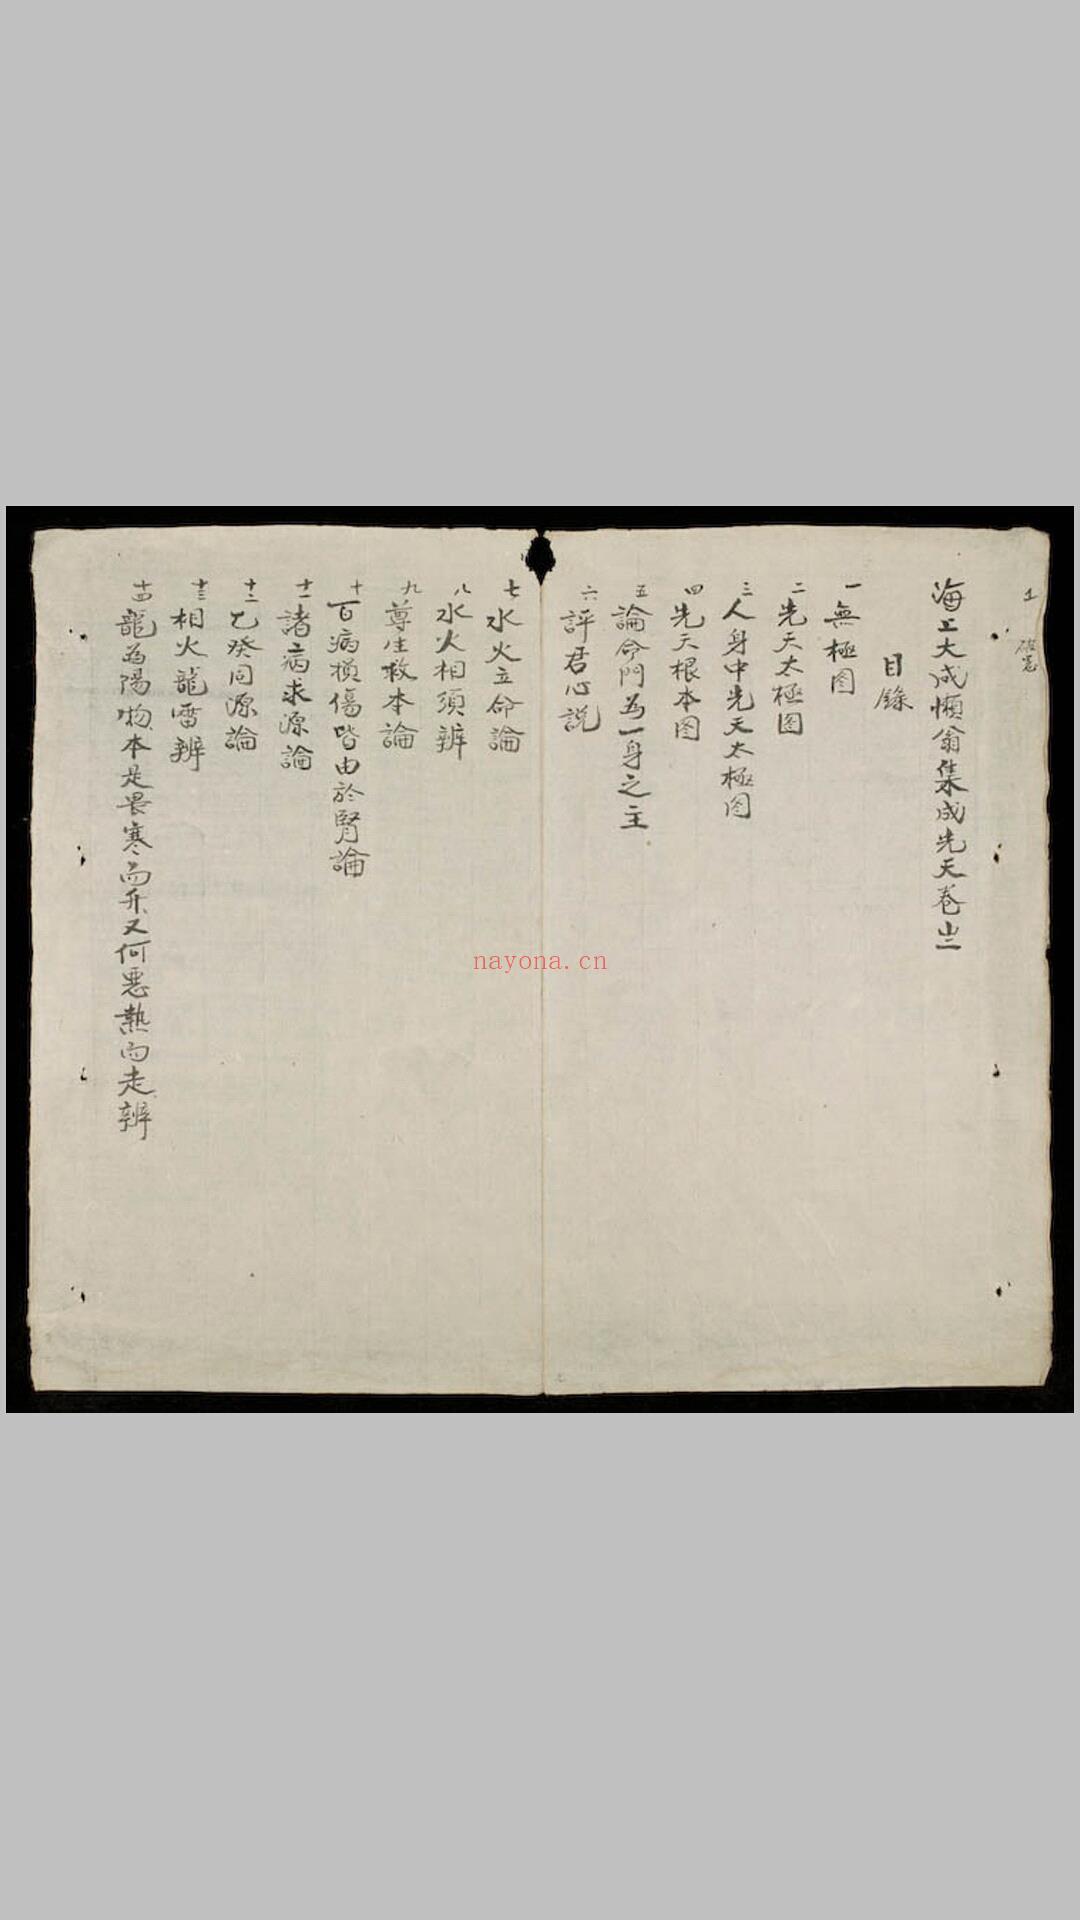 海上大成懶翁集成先天卷之二
目錄
一 無極图
二 先天太極图
三 人身中先天太極图
四 先天根本图
五 論命門為一身之主
六 評君心説
七 水火立命論
八 水火相須辨
九 尊生救本論
十 百病損傷皆由於腎論
十一 諸病求源論
十二 乙癸同源論
十三 相火龍雷辨
十四 龍為陽物本是畏寒而升又何惡熱而走辨
nayona.cn